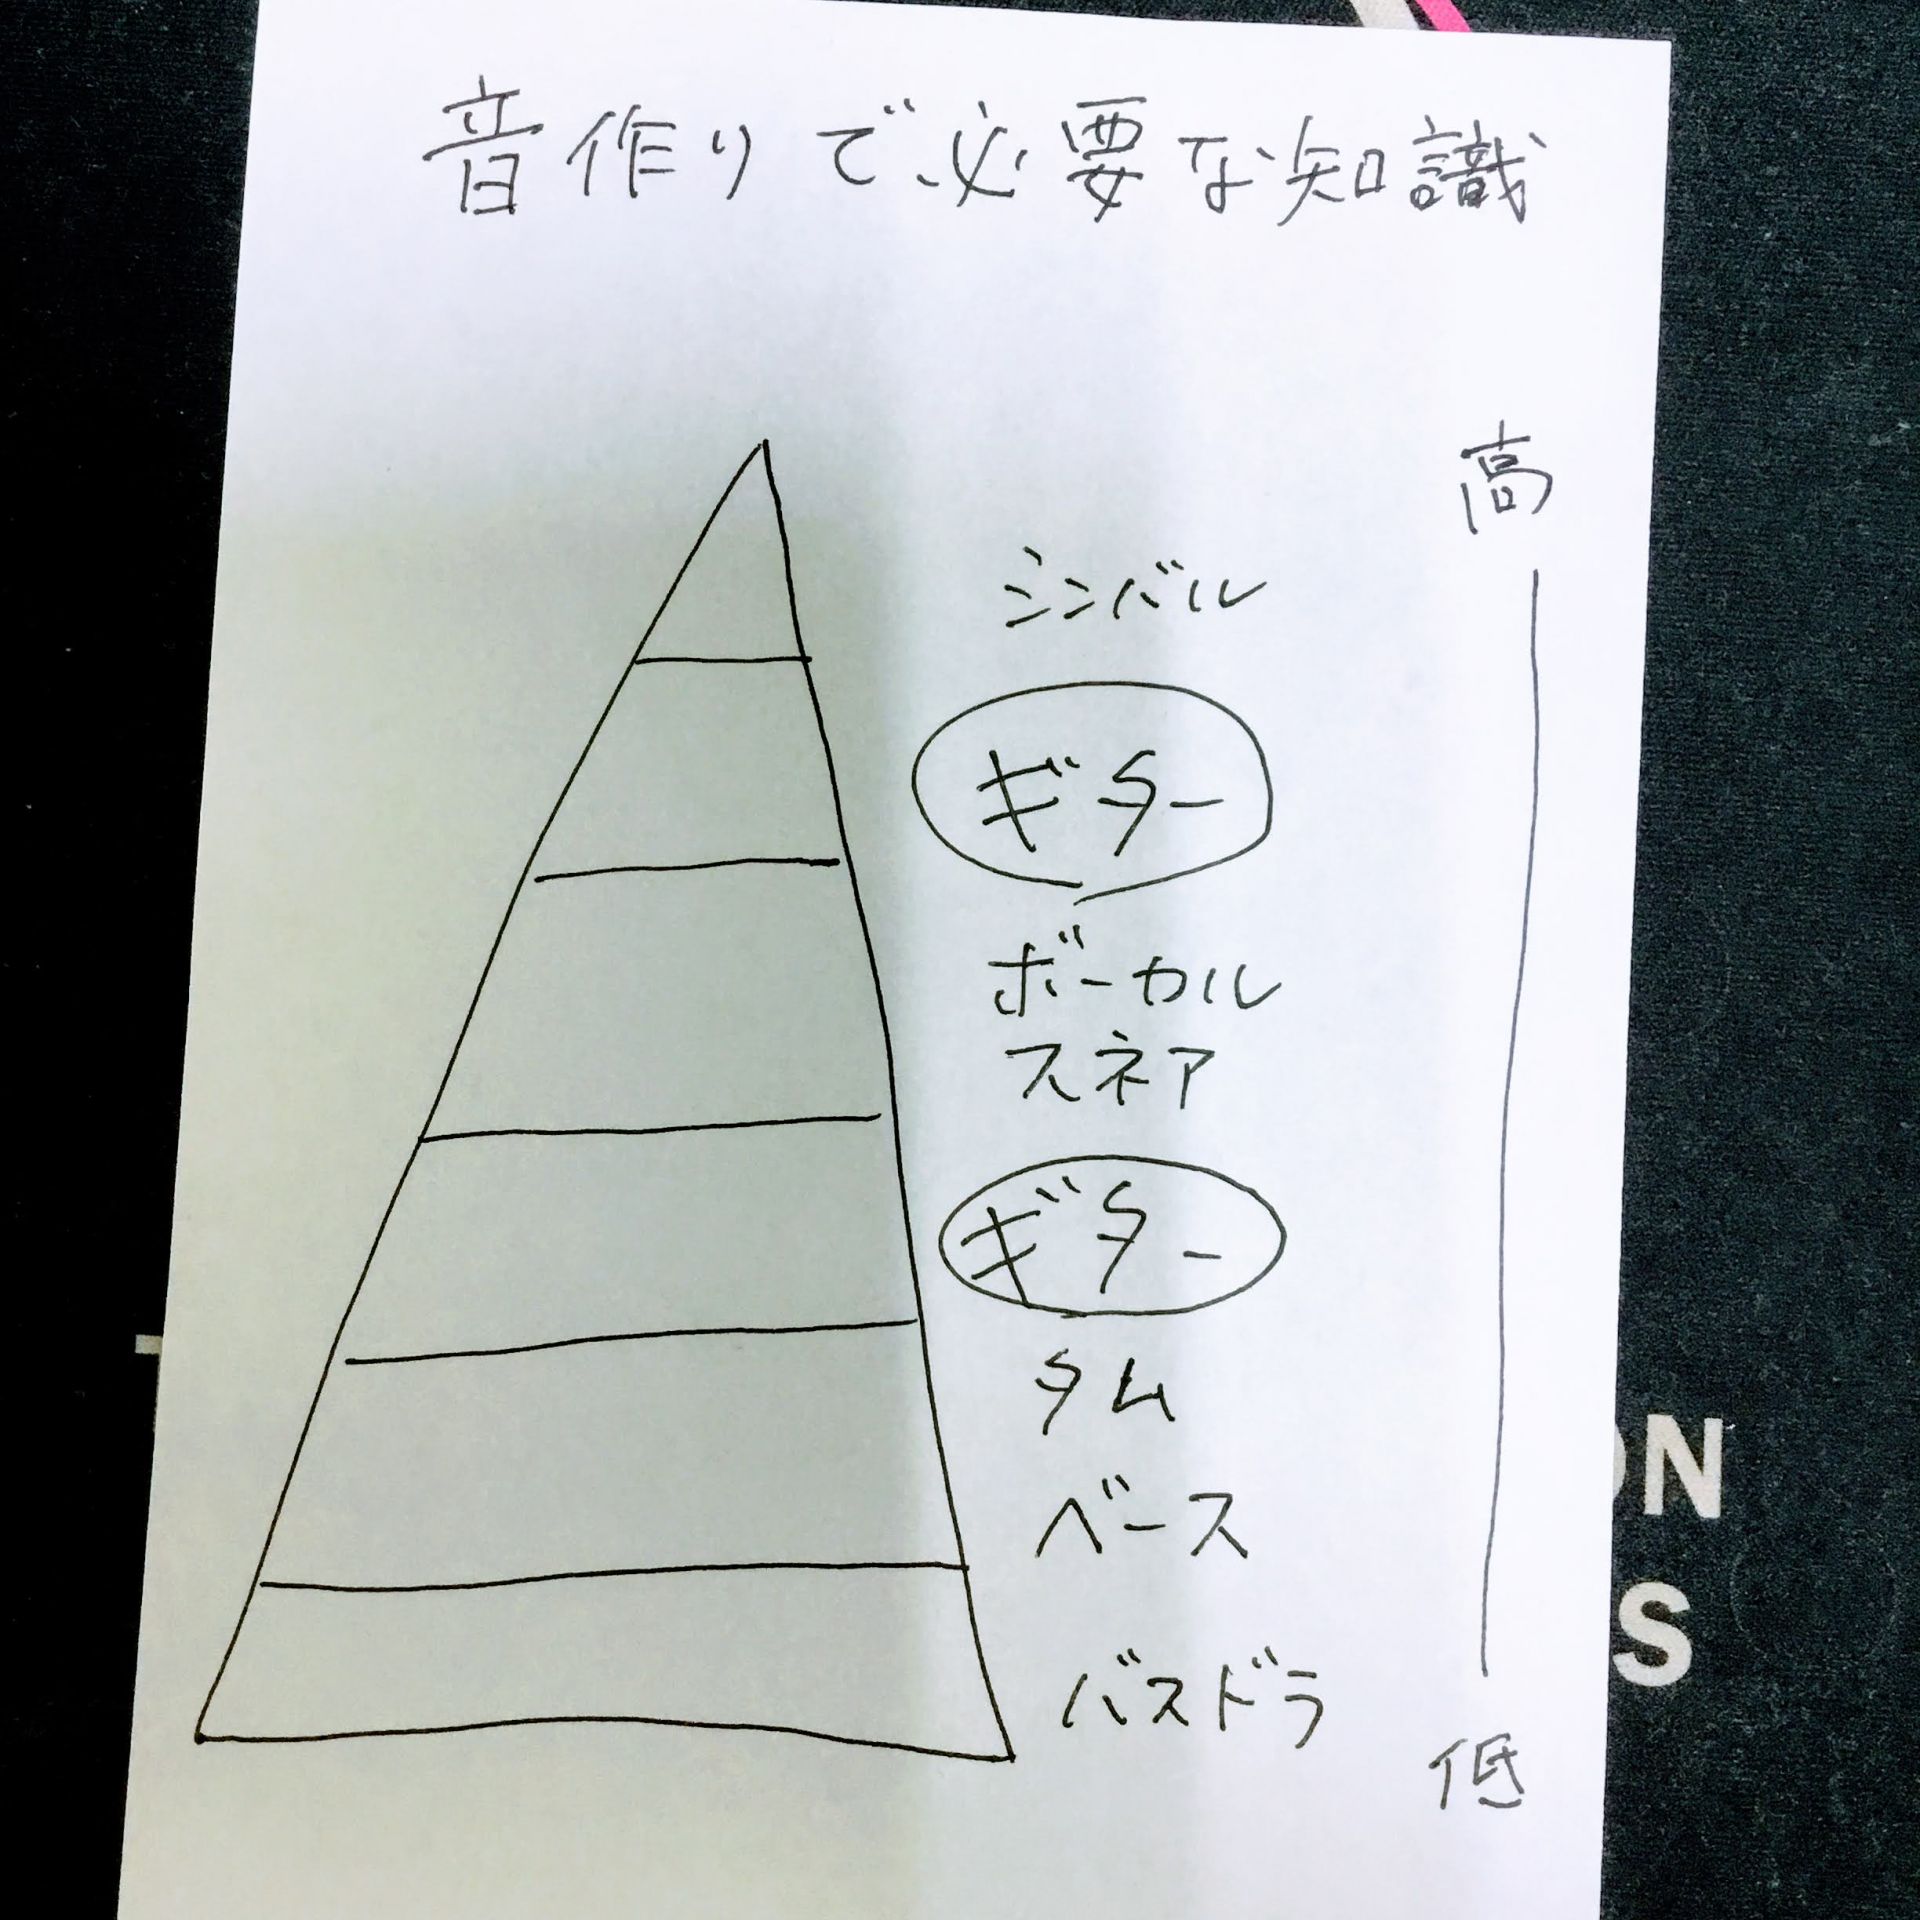 音作りで必要な知識
高
シンバル
ギター
ボーカル
スネア
ギター
タム
ベース
バスドラ
低
ON
S